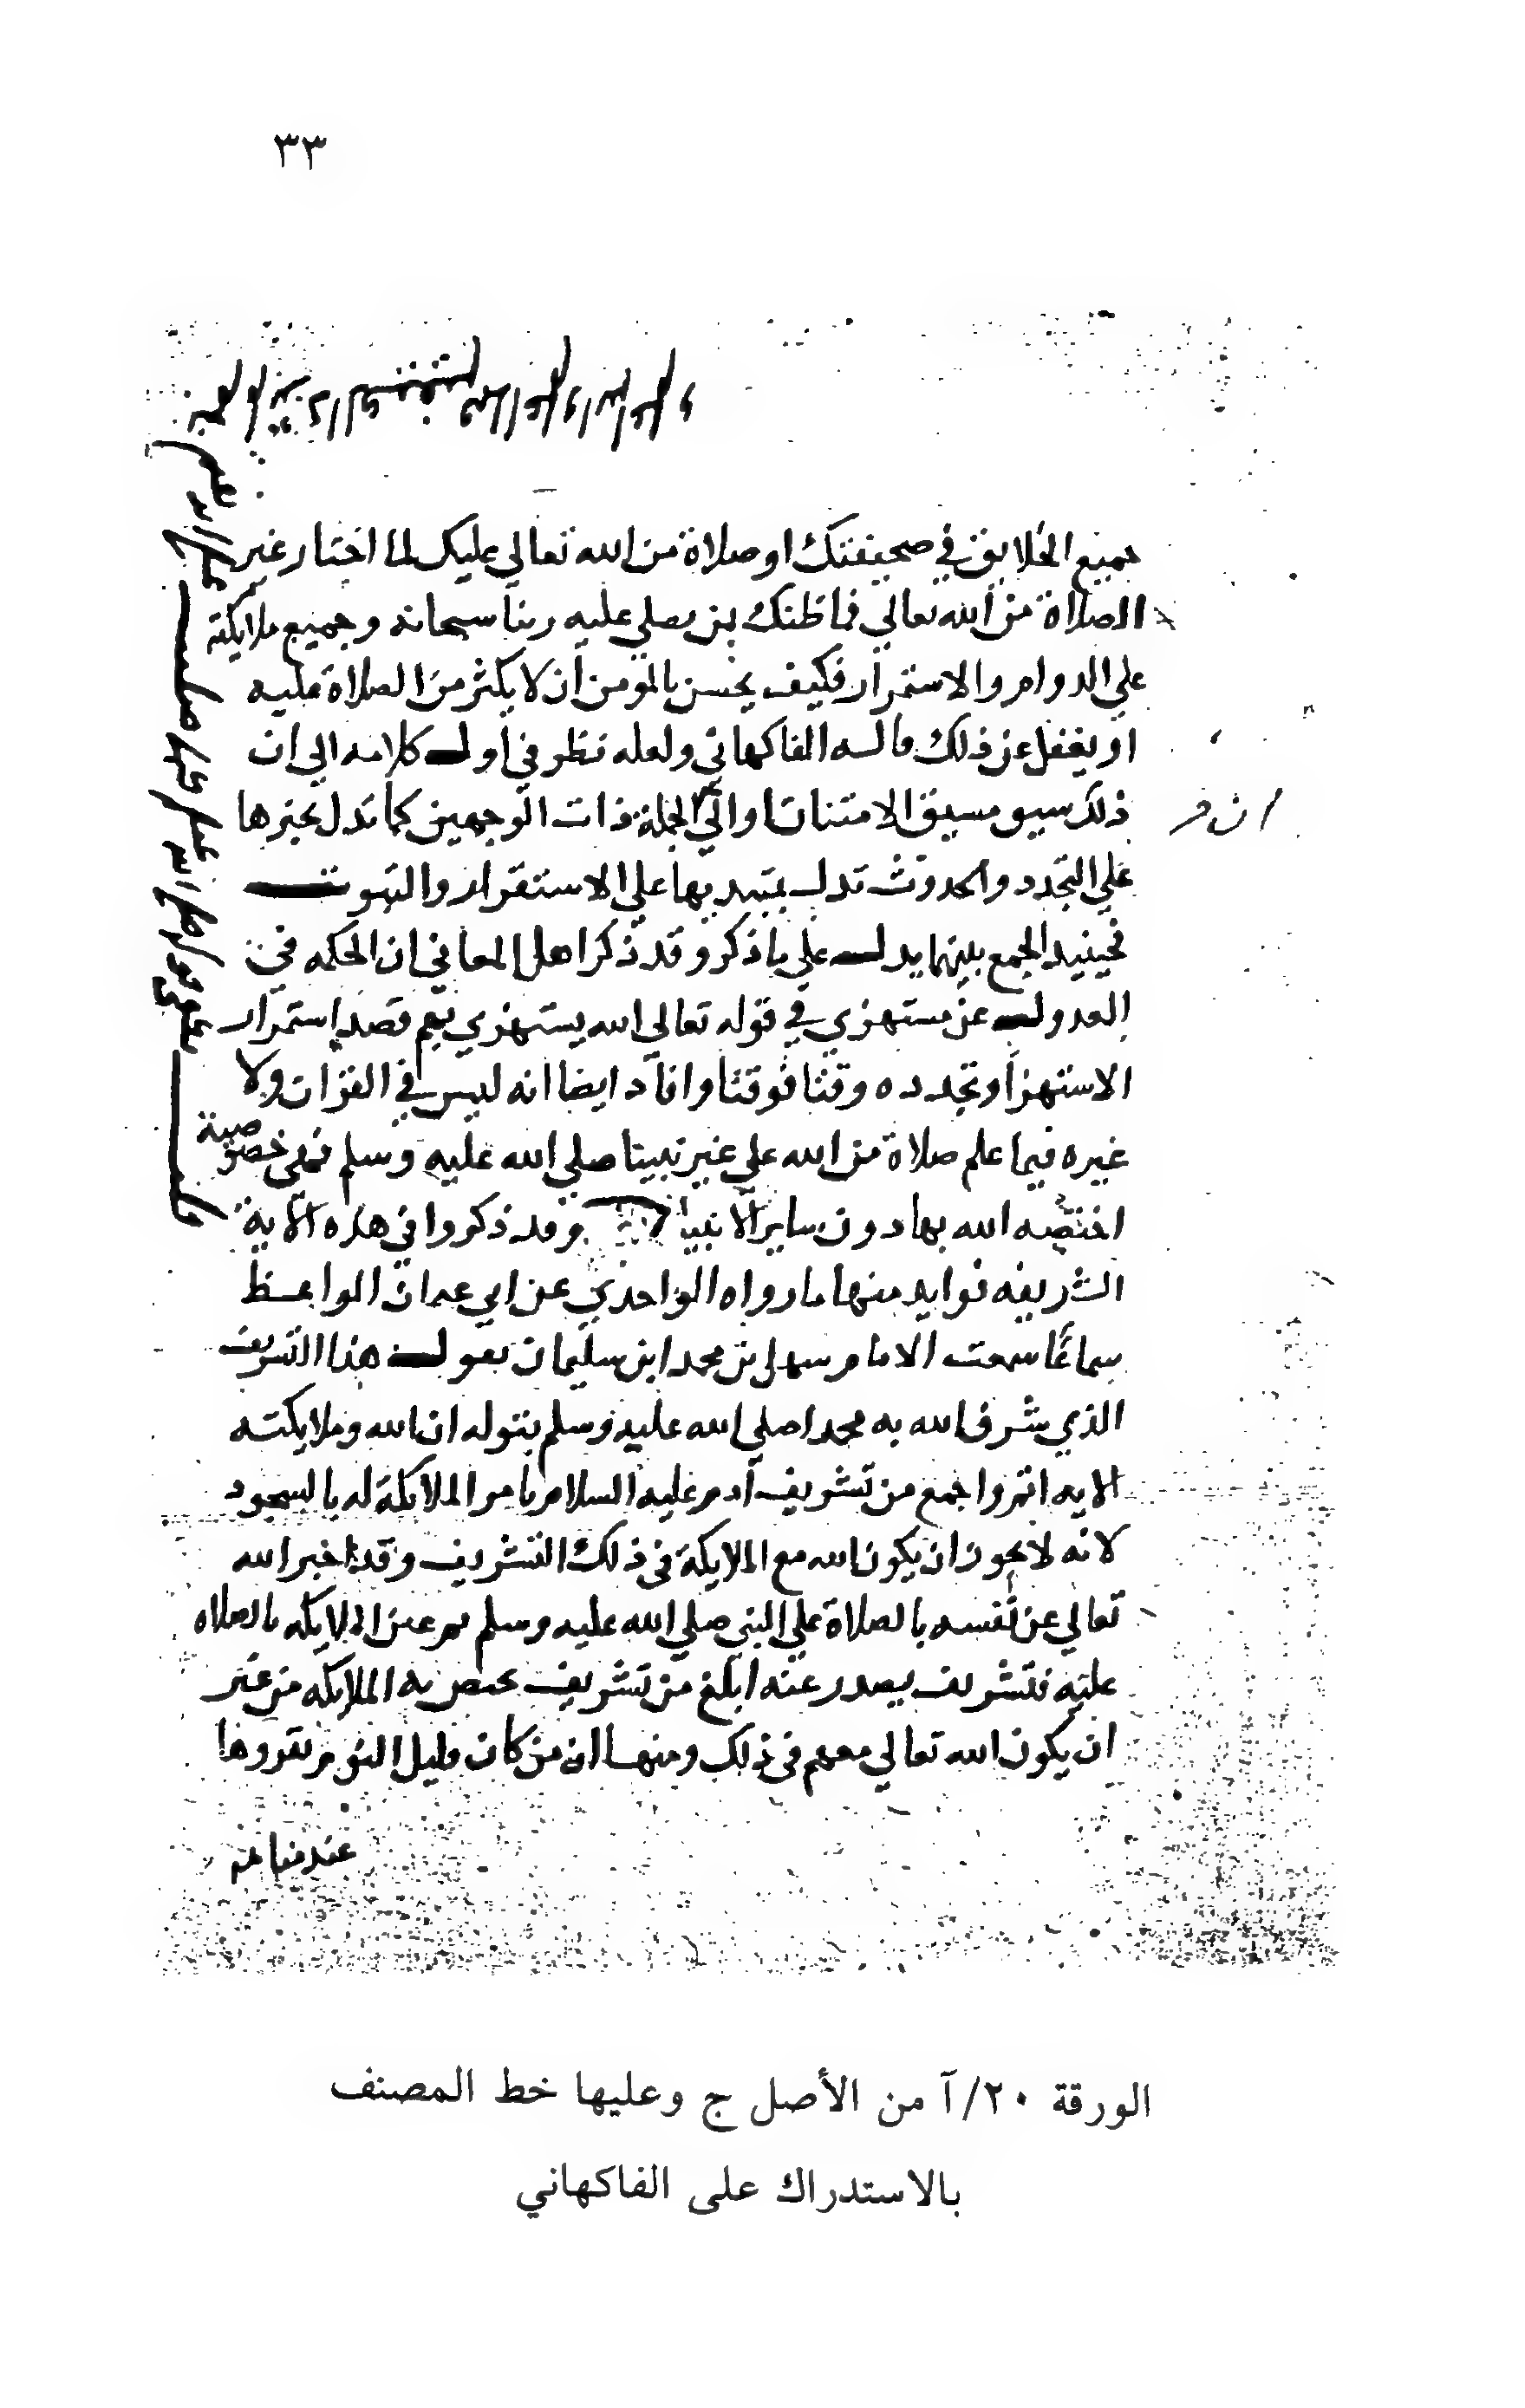 ٣٣
جميع الخلايق في صحيفتك او صلاة من الله تعالي عليك لما اختار غير
الصلاة من الله تعالي فما ظنك بمن يصلي عليه ربنا سبحانه وجميع ملايكته
علي الدوام والاستمرار فكيف يحسن بالمومن ان لا يكثر من الصلاة عليه
او يغفل عن ذلك قاله الفاكهاني ولعله نظر في اول كلامه الي ان
ذلك سيق مسيق الامتنان والي الجملة ذات الوجهين كما تدل بخبرها
علي التجدد والحدوث تدل بمبتدبها علي الاستقرار والثبوت
فحينيد الجمع بينهما يدل علي ما ذكر وقد ذكر اهل المعاني ان الحكمه في
العدول عن مستهزي في قوله تعالي الله يستهزي بهم قصد استمرار
الاستهزا وتجدده وقتا فوقتا وافاد ايضا انه ليس في القران ولا
غيره فيما علم صلاة من الله علي غير نبينا صلي الله عليه وسلم فهي خصوصية
اختصه الله بها دون ساير الانبيا وقد ذكروا في هذه الاية
الشريفه فوايد منها ما رواه الواحدي عن ابي عثمان الواعظ
سماعًا سمعت الامام سهل بن محمد ابن سليمان يقول هذا التشريف
الذي شرف الله به محمدا صلي الله عليه وسلم بقوله ان الله وملايكته
الايه اتم واجمع من تشريف آدم عليه السلام بامر الملايكة له بالسجود
لانه لا يجوز ان يكون الله مع الملايكة في ذلك التشريف وقد اخبر الله
تعالي عن نفسه بالصلاة علي النبي صلي الله عليه وسلم ثم عن الملايكه بالصلاه
عليه فتشريف يصدر عنه ابلغ من تشريف تختص به الملايكه من غير
ان يكون الله تعالي معهم في ذلك ومنها ان من كان قليل النوم يقروها
عند منامه
الورقة ٢٠/آ من الأصل ج وعليها خط المصنف
بالاستدراك على الفاكهاني